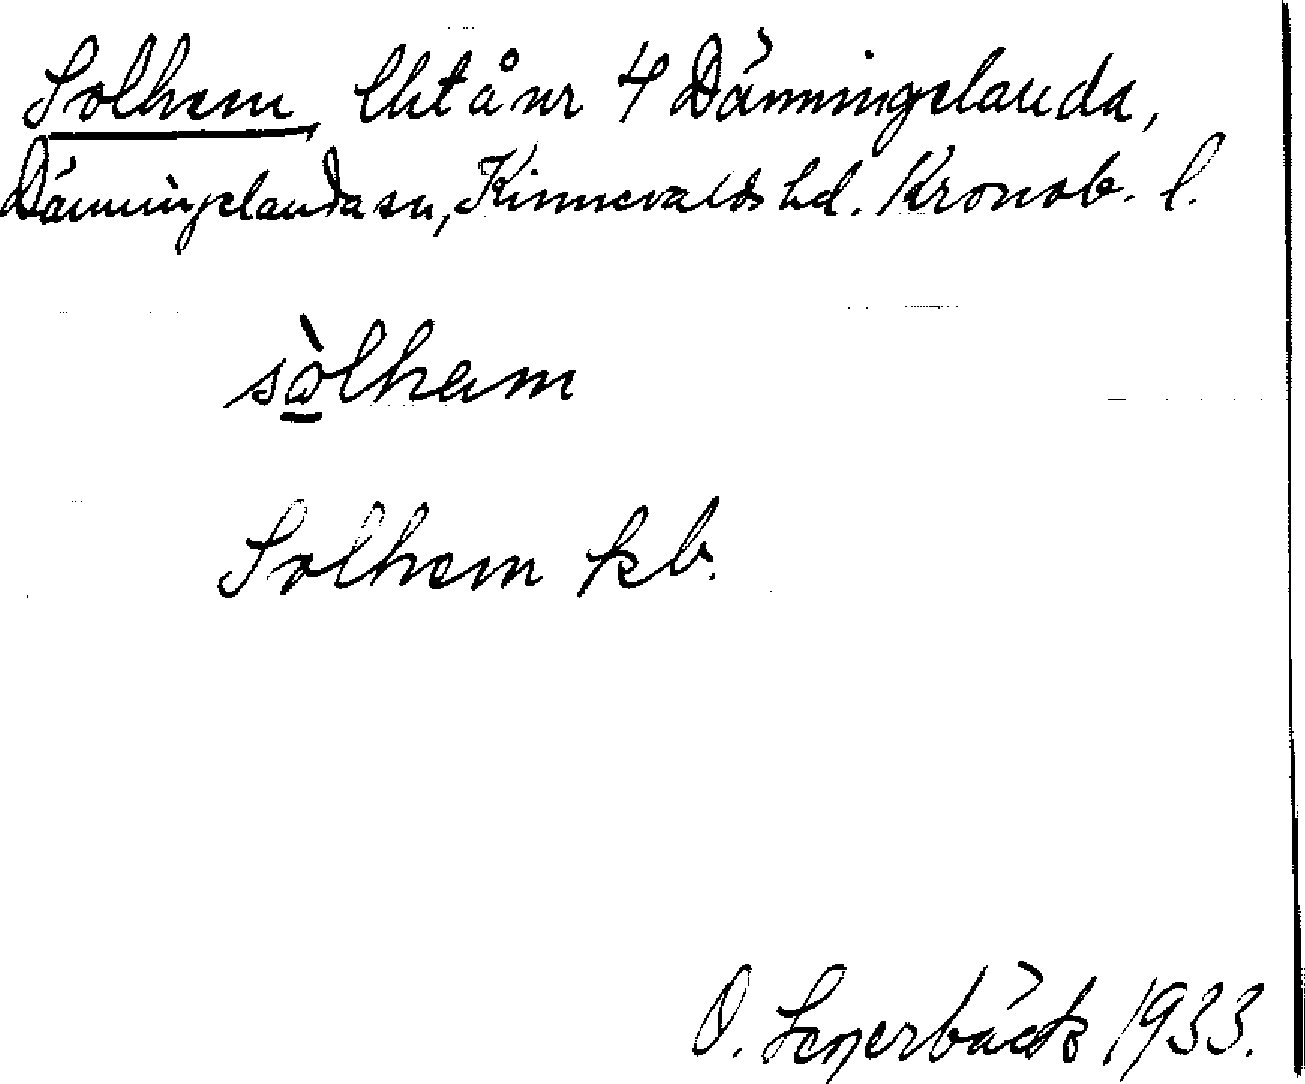 Solhem, lht å nr 4 Dänningelanda,
Dänningelanda sn, Kinnevalds hd. Kronob. l.
sòlhem
Solhem kb.
O. 1933.